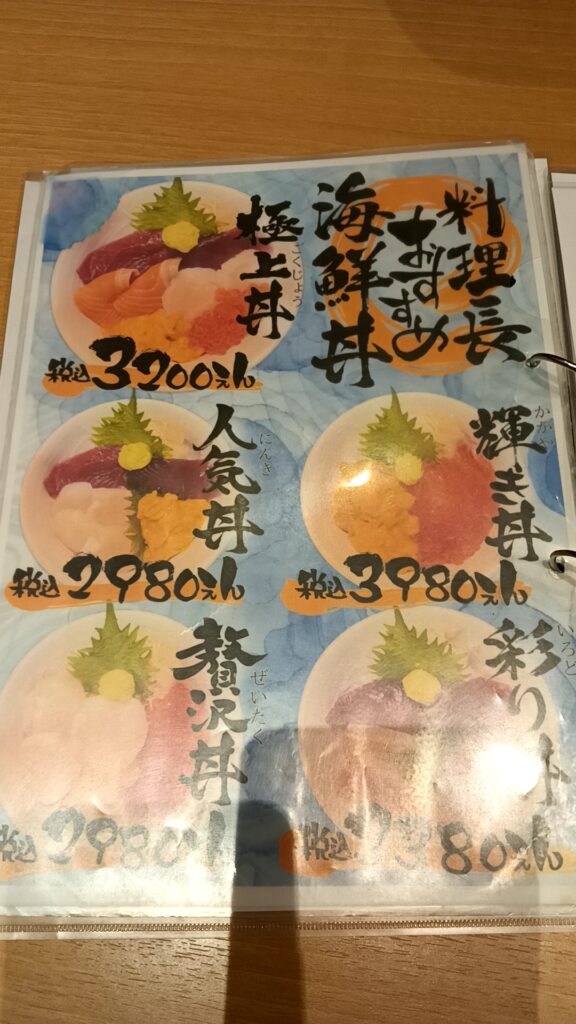 料理長
おすすめ
海鮮丼
極上丼
ごくじょう
税込3200えん
輝き丼
かがや
税込3980えん
人気丼
にんき
税込2980えん
彩り丼
いろど
税込2380えん
贅沢丼
ぜいたく
税込2980えん